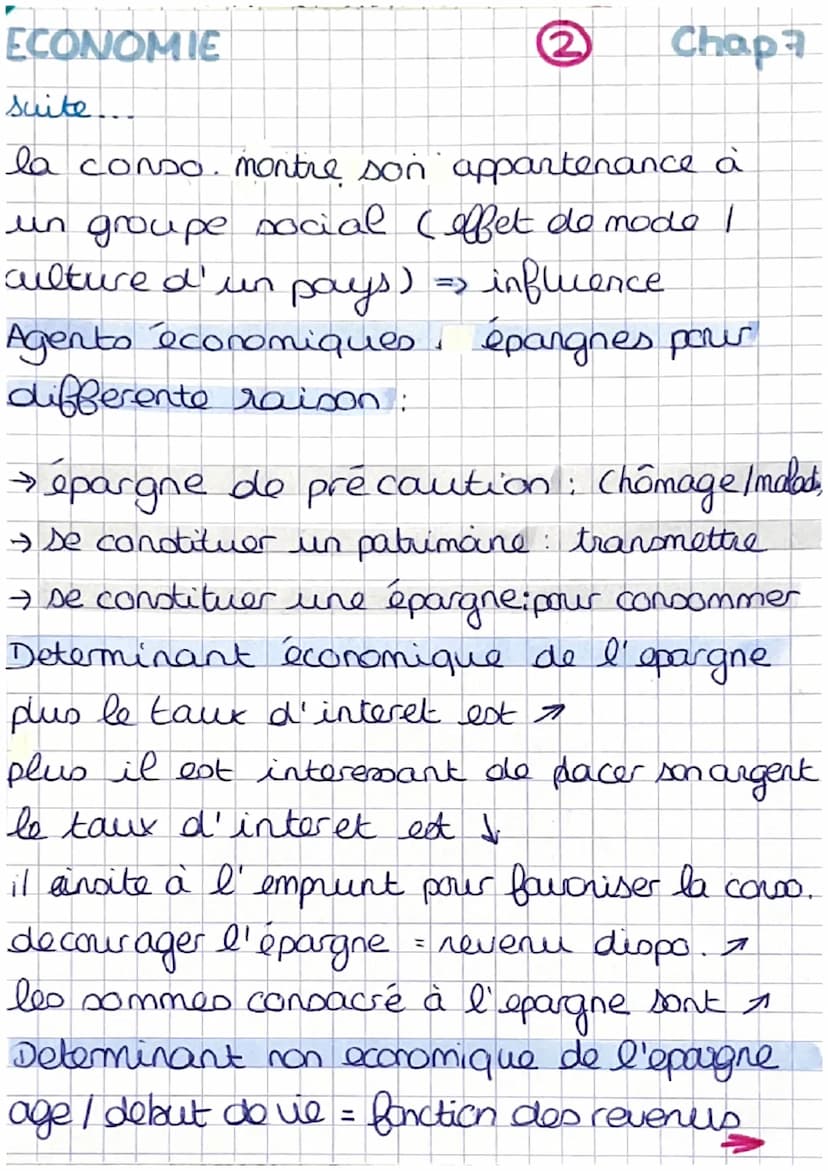 ECONOMIE ② Chap 7
suite...
la conso. montre son appartenance à
un groupe social (effet de mode /
culture d'un pays) => influence
Agents économiques, épangnes pour
differente raison :
→ épargne de précaution : chômage/malad,
→ se constituer un patrimoine : transmettre
→ se constituer une épargne : pour consommer
Determinant économique de l'epargne
plus le taux d'interet est ↗
plus il est interessant de placer son argent
le taux d'interet est ↓
il insite à l'emprunt pour favoriser la conso.
decourager l'épargne = revenu dispo. ↗
les sommes consacré à l'epargne sont ↗
Determinant non economique de l'epargne
age / debut de vie = fonction des revenus →